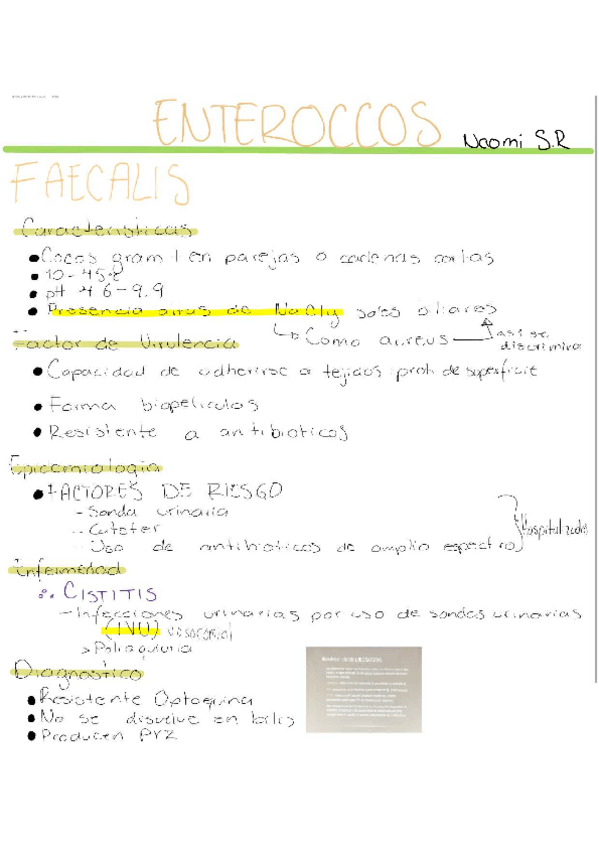 ENTEROCCOS Naomi S.R
FAECALIS
Caracteristicas
Cocos gram + en parejas o cadenas cortas
10 - 45°
pH 4.6 - 9.9
Presencia altas de NaCl y sales biliares
Como aureus así se
discrimina
Factor de Virulencia
Capacidad de adherirse a tejidos: prot. de superficie
Forma biopeliculas
Resistente a antibioticos
Epidemiologia
FACTORES DE RIESGO
- Sonda urinaria
- Cateter
- Uso de antibioticos de amplio espectro
Hospitalizados
Enfermedad
CISTITIS
- Infecciones urinarias por uso de sondas urinarias
(IVU) nosocomial
> Poliaquiuria
Diagnostico
Resistente Optoquina
No se disuelve en bilis
Producen PYZ